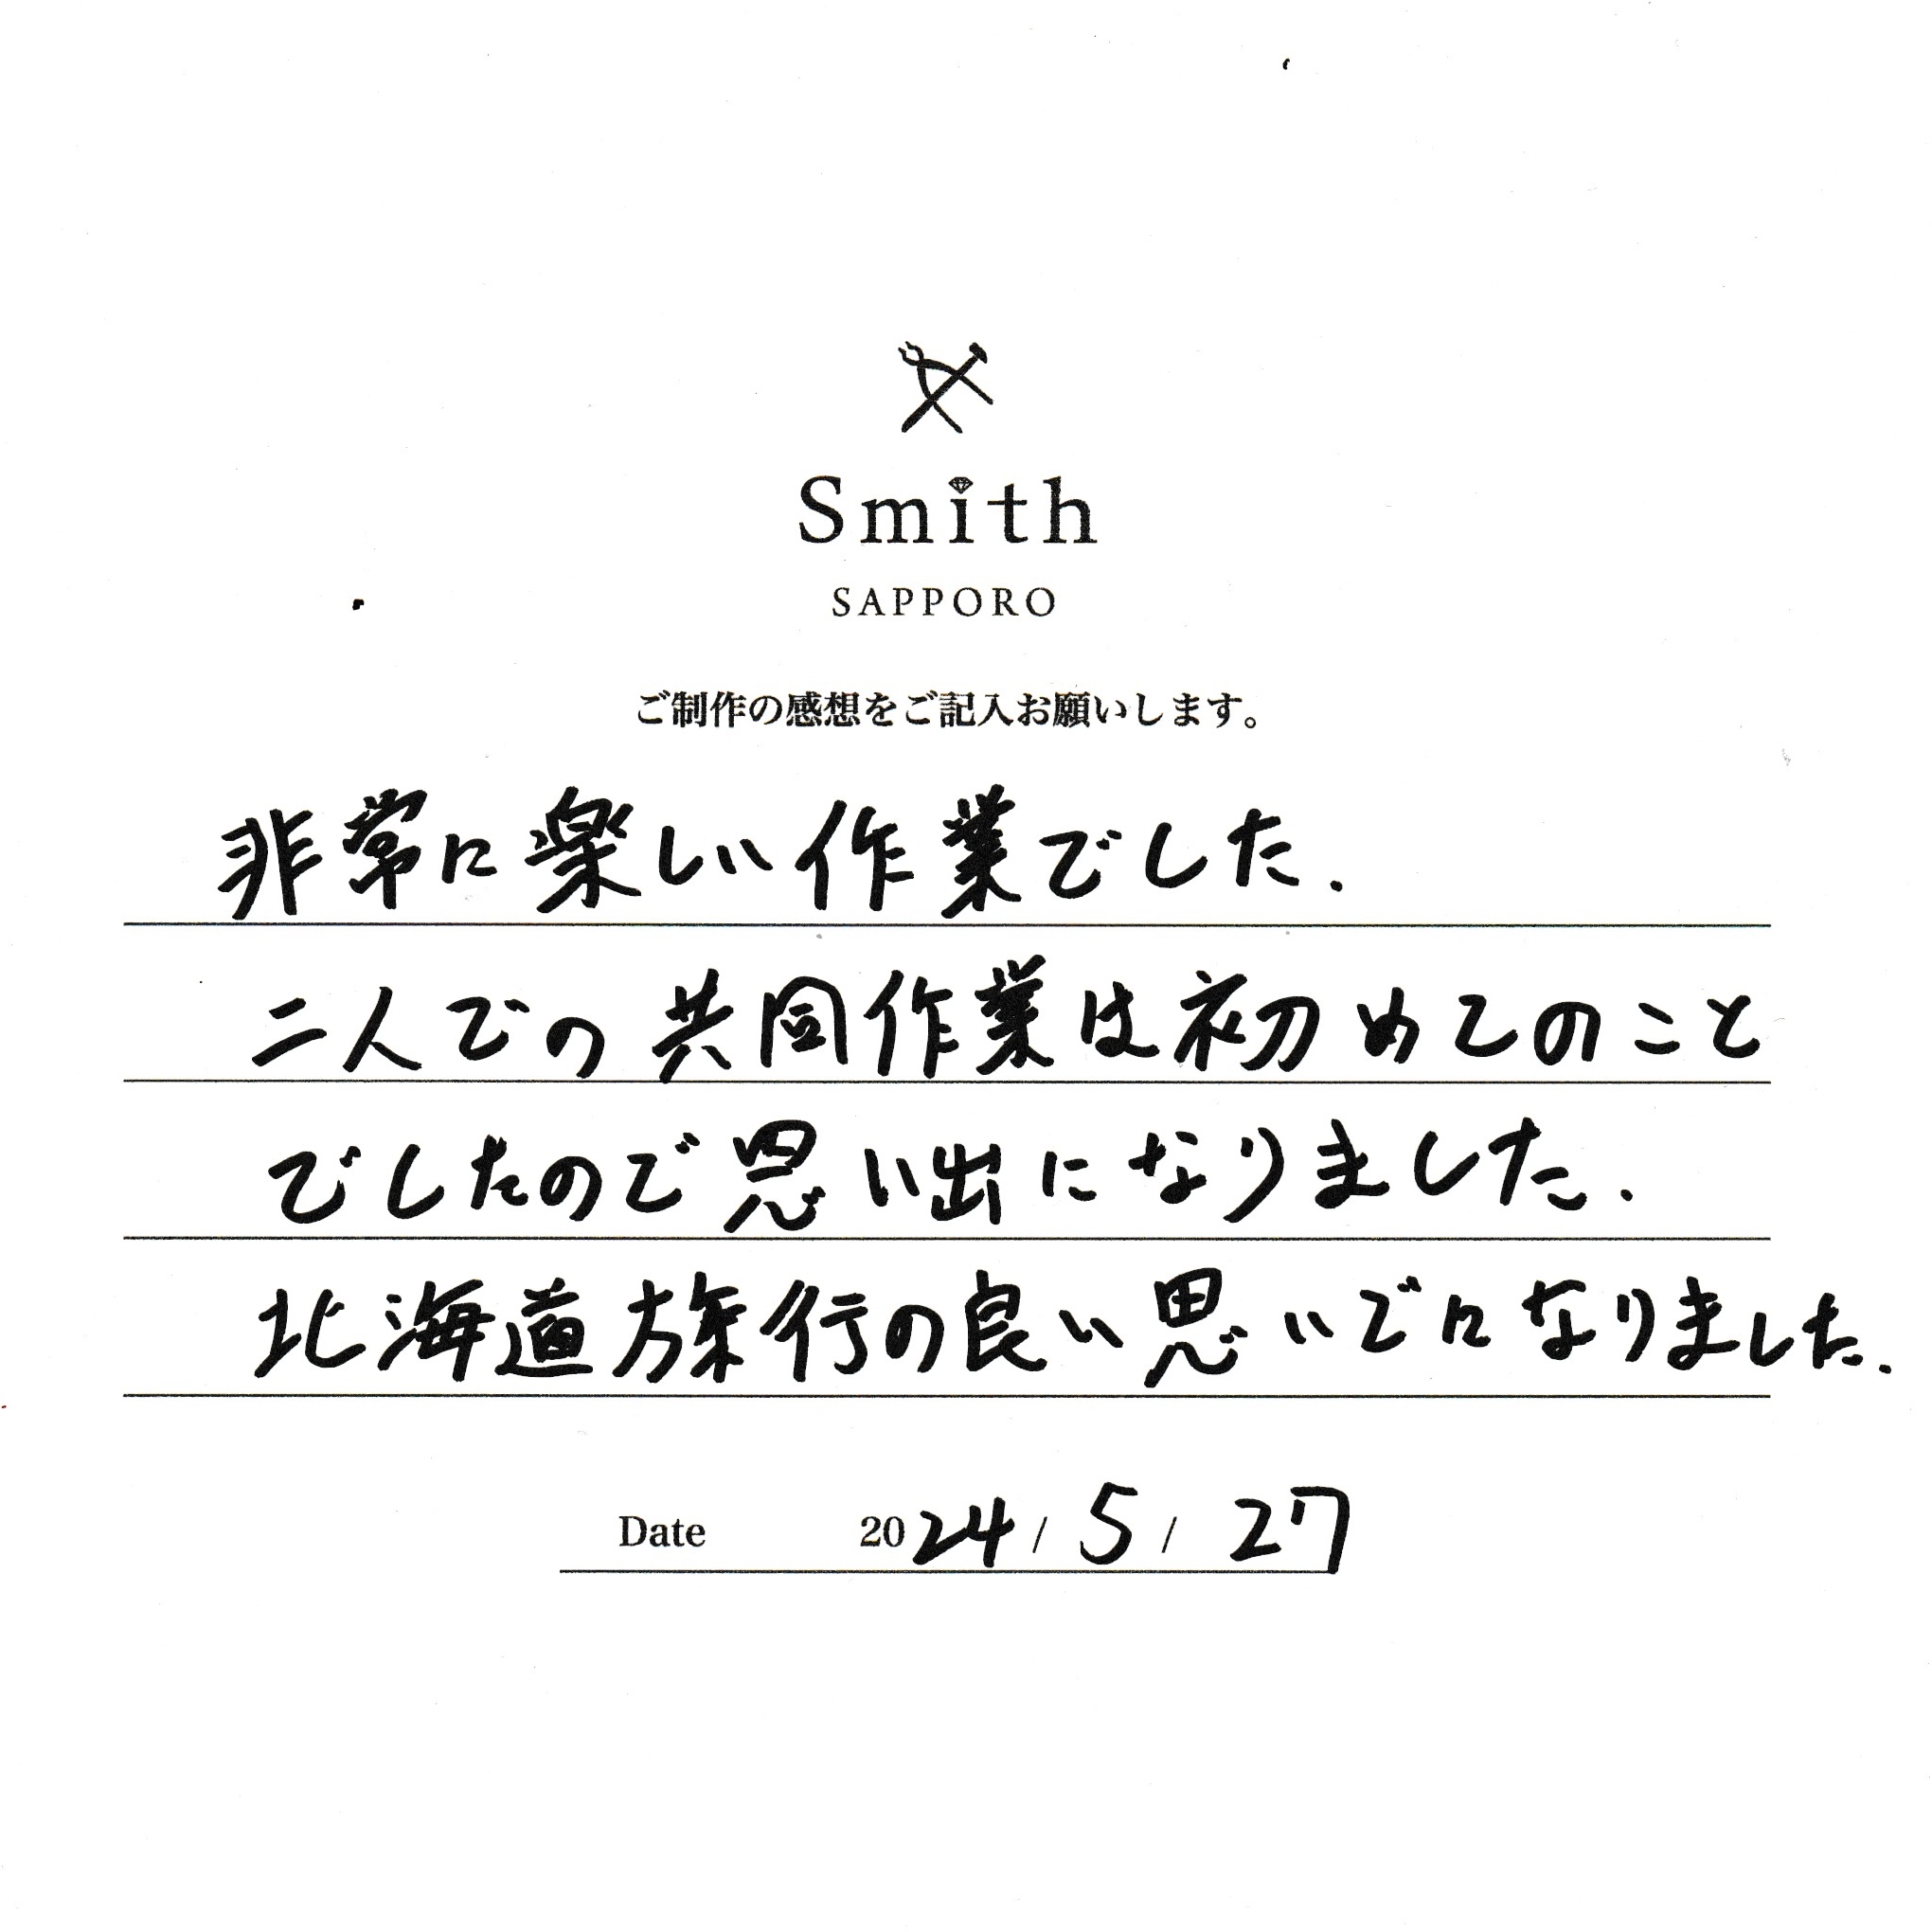 Smith
SAPPORO
ご制作の感想をご記入お願いします。
非常に楽しい作業でした.
二人での共同作業は初めてのこと
でしたので思い出になりました.
北海道旅行の良い思いでになりました.
Date 2024/5/27